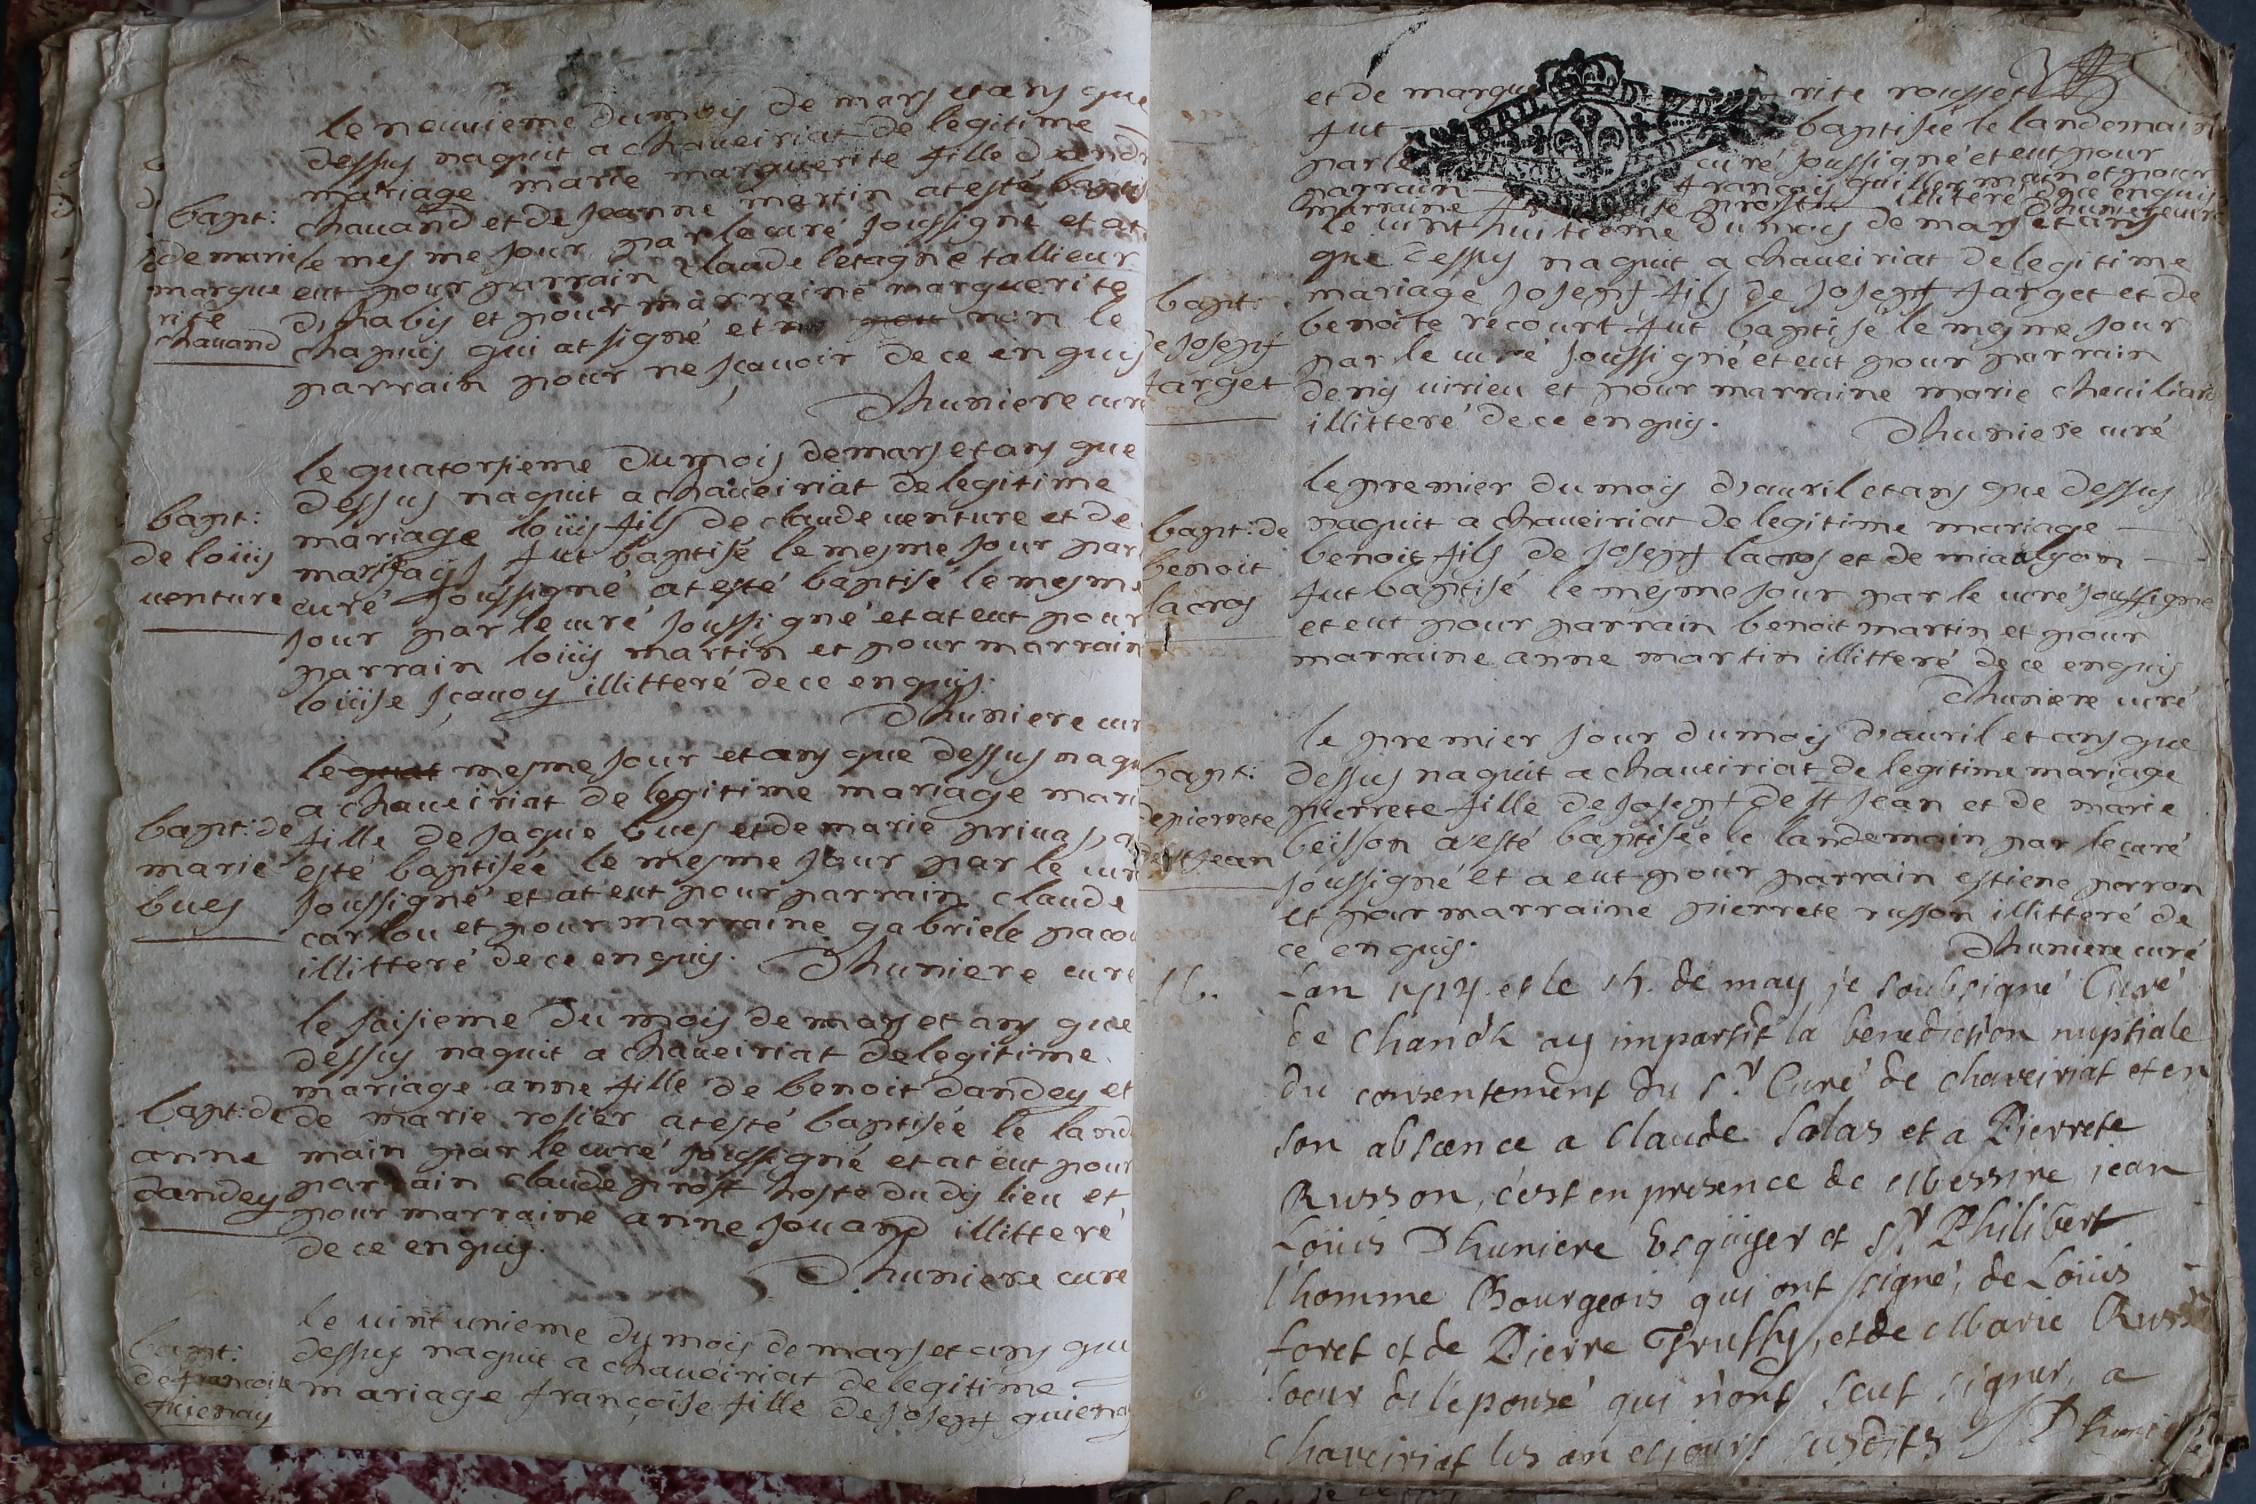 le neuvieme du mois de mars et ans que
dessus naquit a chaveiriat de legitime
mariage marie marguerite fille d'andr
bapt:
chavand et de jeanne martin at esté baptis
de marie
le mesme jour par le curé soussigné et at
margue
eut pour parrain claude letagne tallieur
rite
d'habis et pour marraine marguerite
chavand
chapuis qui at signé et non le
parrain pour ne sçavoir de ce enquis
Dhuniere curé
le quatorsieme du mois de mars et ans que
dessus naquit a chaveiriat de legitime
bapt:
mariage loüis fils de claude venture et de
de loüis
fut baptisé le mesme jour par
venture
curé soussigné at esté baptisé le mesme
jour par le curé soussigné et at eut pour
parrain loüis martin et pour marrain
loüise sçavoy illitteré de ce enquis.
Dhuniere cur
le mesme jour et ans que dessus naqu
a chaveiriat de legitime mariage mari
bapt: de
fille de jaque bues et de marie privas, a
marie
esté baptisée le mesme jour par le cur
bues
soussigné et at eut pour parrain claude
carlou et pour marraine gabriele pacou
illitteré de ce enquis. Dhuniere curé
le saisieme du mois de mars et ans que
dessus naquit a chaveiriat de legitime
mariage anne fille de benoit dandey et
bapt: de
de marie rosier at esté baptisée le land
anne
main par le curé soussigné et at eut pour
dandey
parrain claude prost hoste du dis lieu et
pour marraine anne jouand illitteré
de ce enquis.
Dhuniere curé
le vint unieme du mois de mars et ans que
bapt:
dessus naquit a chaveiriat de legitime
de françoise
mariage françoise fille de josept guienay
guienay
et de margue rite rousset
fut baptisée le landemain
par le curé soussigné et eut pour
parrain françois guillermain et pour
marraine prost illiteré de ce enquis
Dhuniere curé
le vint huitieme du mois de mars et ans
que dessus naquit a chaveiriat de legitime
bapt:
mariage josept fils de josept farget et de
de josept
benoite recourt fut baptisé le mesme jour
par le curé soussigné et eut pour parrain
farget
denis virieu et pour marraine marie cheviliard
illitteré de ce enquis.
Dhuniere curé
le premier du mois d'avril et ans que dessus
bapt: de
naquit a chaveiriat de legitime mariage
benoit
benoit fils de josept lacros et de mialyon
lacros
fut baptisé le mesme jour par le curé soussigné
et eut pour parrain benoit martin et pour
marraine anne martin illitteré de ce enquis
Dhuniere curé
le premier jour du mois d'avril et ans que
bapt:
dessus naquit a chaveiriat de legitime mariage
de pierrete
pierrete fille de josept de st jean et de marie
de st jean
beïsson a esté baptisée le landemain par le curé
soussigné et a eut pour parrain estiene perron
et par marraine pierrete russon illitteré de
ce enquis.
Dhuniere curé
Lan 1717. et le 15. de may je soubsigné Curé
de Chandk ay impartit la benediction nuptiale
du consentement du Sr. Curé de chaveiriat et en
son absence a Claude Salas et a Pierrete
Russon, c'est en presence de Messire jean
Loüis Dhuniere Esquiyer et Sr Philibert
l'homme Bourgeois qui ont signé, de Loüis
foret et de Pierre Truffy, et de Marie Russ
soeur de l'epousé qui n'ont sceut signer, a
chaveiriat les an et jours susdits